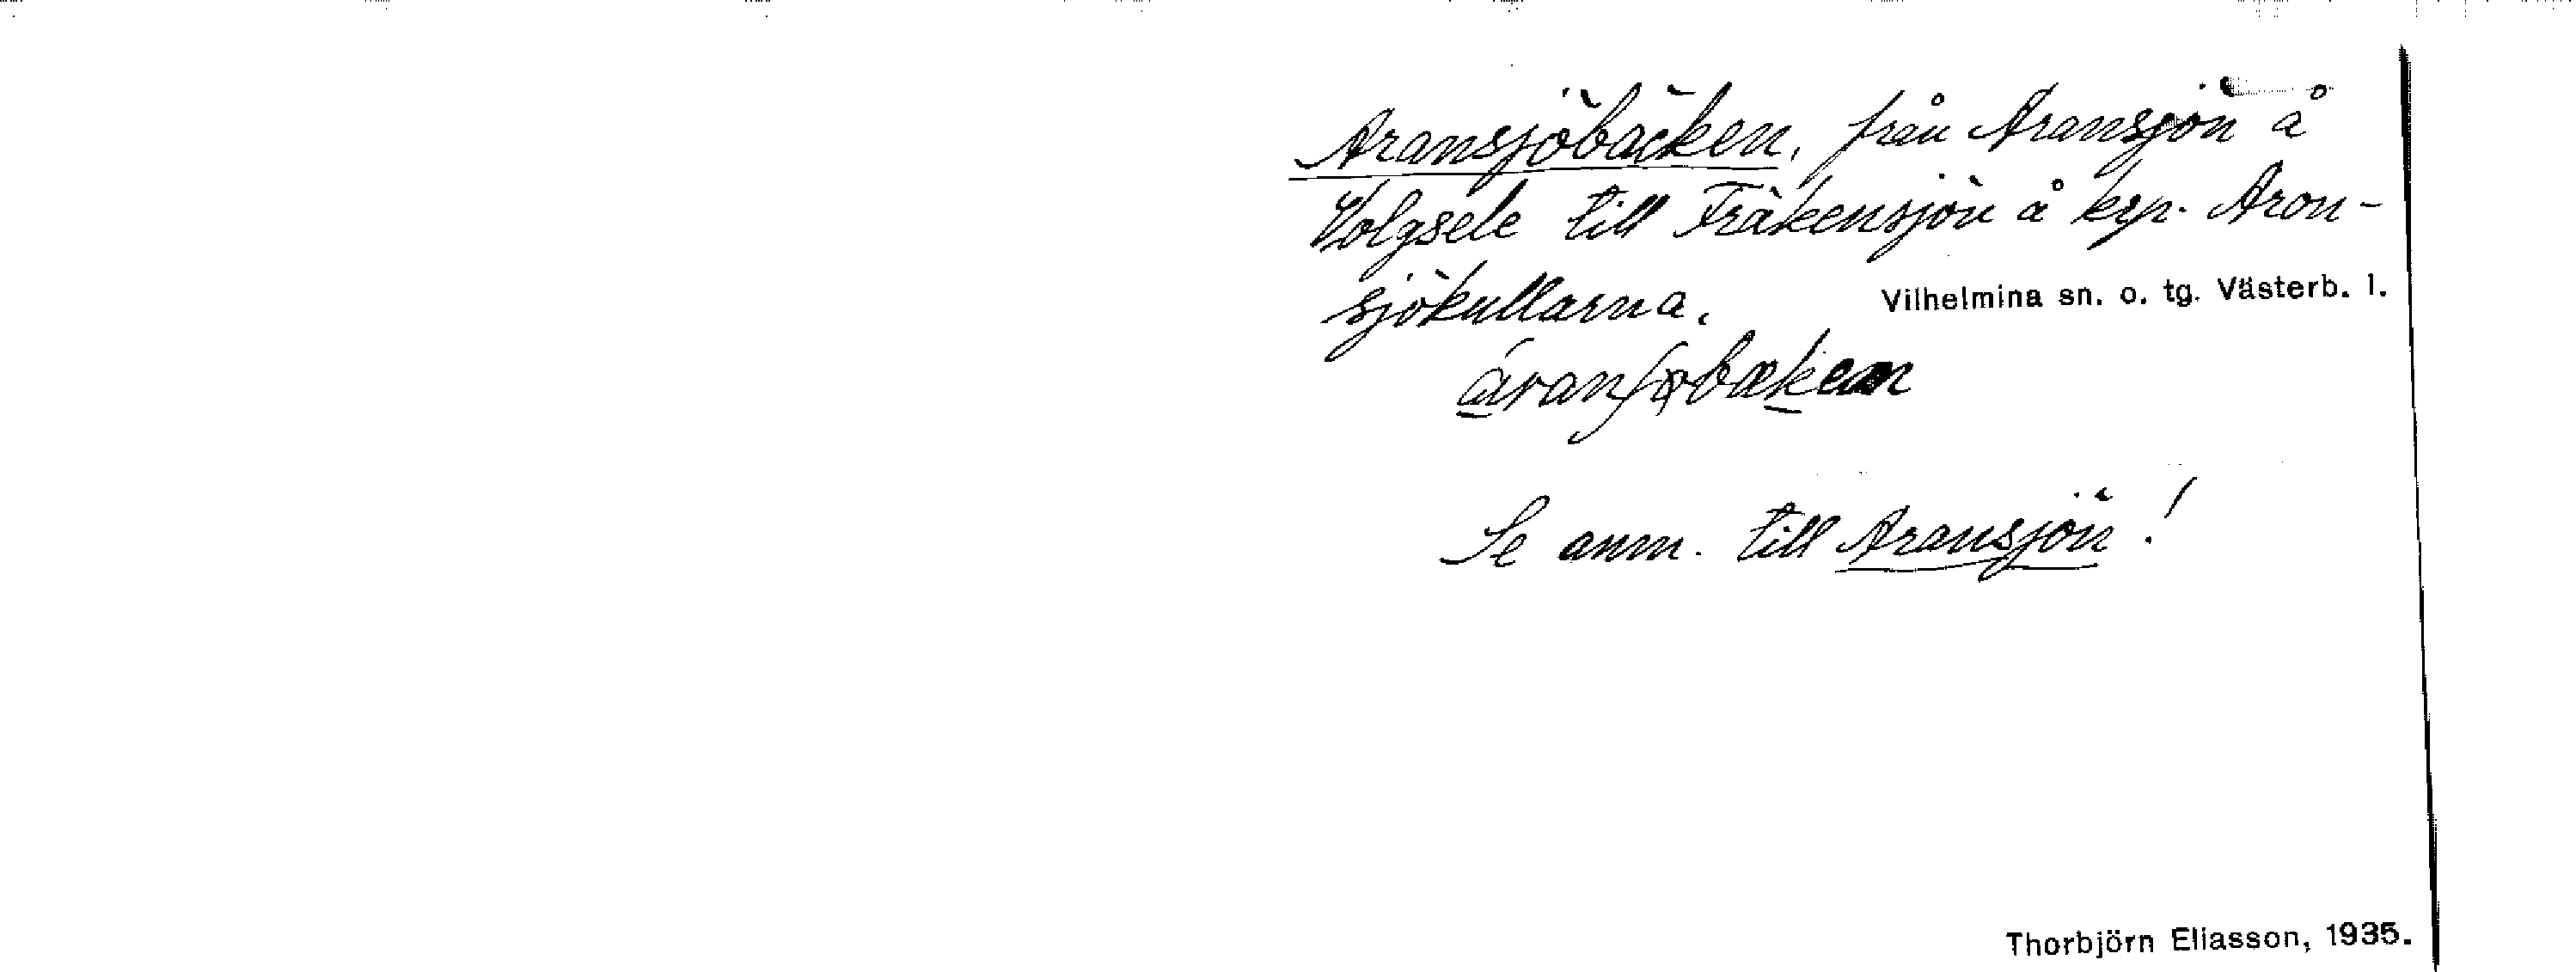 Aransjöbäcken, från Aransjön å
Volgsele till Fräkensjön å krp. Aron-
sjökullarna.
Vilhelmina sn. o. tg. Västerb. l.
Se anm. till Aransjön!
Thorbjörn Eliasson, 1935.